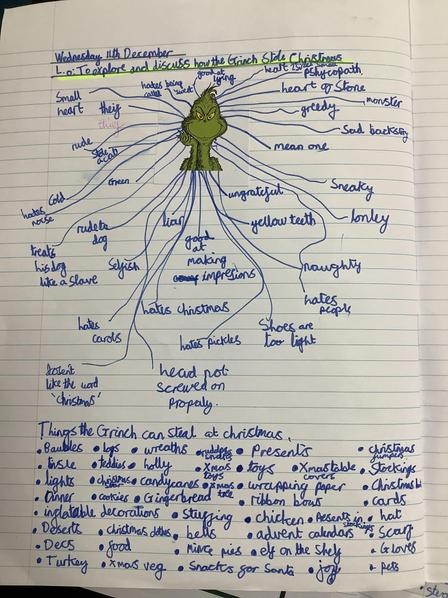 Wednesday 11th December
L.o: To explore and discuss how the Grinch Stole Christmas
hates being called "sweet"
good at lying
heart 2 sizes
Pshycopath
Small heart
theif
heart of Stone
monster
greedy
Sad backstory
rude
Stole a cat
mean one
Green
Sneaky
cold
hates noise
ungrateful
lonley
rude to dog
liar
yellow teeth
treats his dog like a slave
Selfish
good at making impresions
naughty
hates christmas
hates people
hates carols
hates pickles
Shoes are too tight
dosent like the word "christmas"
head not screwed on Properly.
Things the Grinch can steal at christmas.
• Baubles • logs • wreaths • Presents • christmas jumpers
• tinsle • teddies • holly • Xmas toys • toys • Xmas table covers • Stockings
• lights • christmas • candycanes • Xmas tree • wrapping paper • Christmas
• Dinner • cookies • Gingerbread • ribbon bows • cards
• inflatable decorations • stuffing • chicken • Presents in stockings • hat
• Deserts • christmas clothes • bells • advent calendars • Scarf
• Decs • food • Mince pies • elf on the shelf • Gloves
• Turkey • Xmas veg • Snacks for Santa • joy • pets